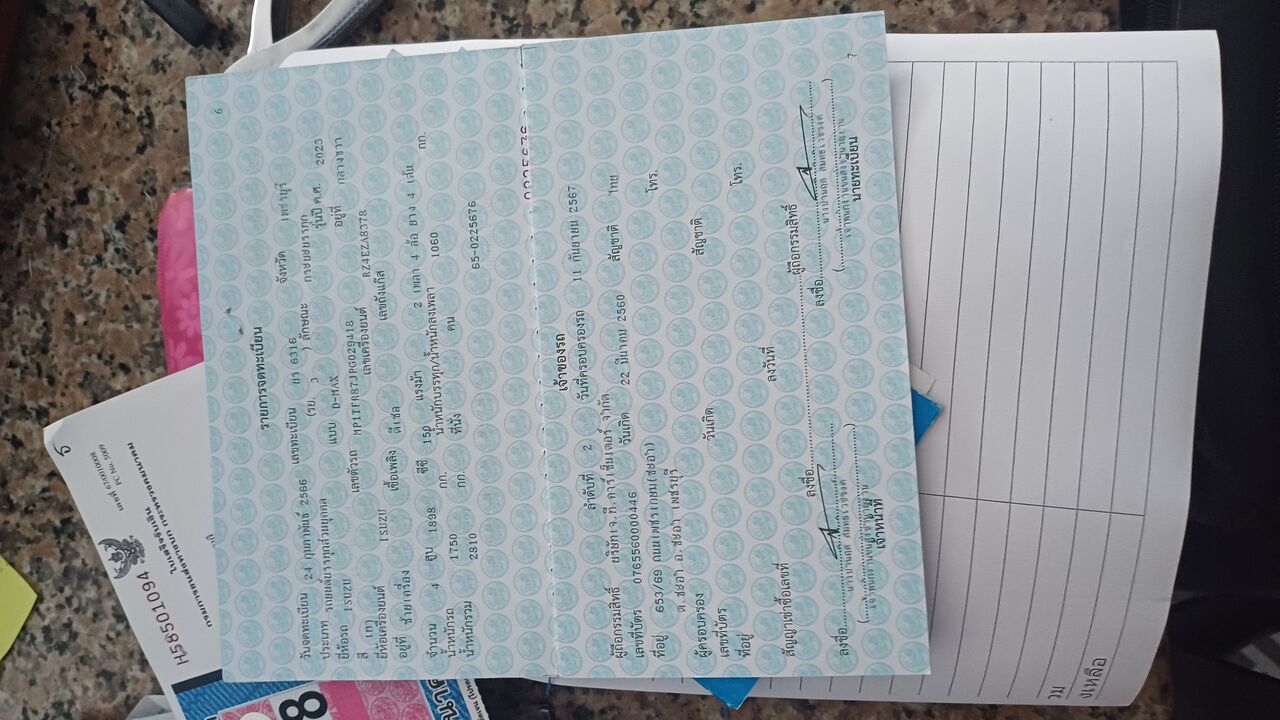 6
รายการจดทะเบียน
วันจดทะเบียน 24 กุมภาพันธ์ 2566 เลขทะเบียน ยา 6316 จังหวัด เพชรบุรี
ประเภท รถยนต์บรรทุกส่วนบุคคล (รย. 3 ) ลักษณะ กระบะบรรทุก
ยี่ห้อรถ ISUZU แบบ D-MAX รุ่นปี ค.ศ. 2023
สี เทา เลขตัวรถ MP1TFR87JPG029418 อยู่ที่ กลางขวา
ยี่ห้อเครื่องยนต์ ISUZU เลขเครื่องยนต์ RZ4EZA8378
อยู่ที่ ซ้ายเครื่อง เชื้อเพลิง ดีเซล เลขถังแก๊ส
จำนวน 4 สูบ 1898 ซีซี 150 แรงม้า 2 เพลา 4 ล้อ ยาง 4 เส้น
น้ำหนักรถ 1750 กก. น้ำหนักบรรทุก/น้ำหนักลงเพลา 1060 กก.
น้ำหนักรวม 2810 กก. ที่นั่ง คน
65-0225676
เจ้าของรถ
ลำดับที่ 2 วันที่ครอบครองรถ 11 กันยายน 2567
ผู้ถือกรรมสิทธิ์ บริษัทเจ.ที.คาร์เซ็นเตอร์ จำกัด
เลขที่บัตร 0765560000446 วันเกิด 22 มีนาคม 2560 สัญชาติ ไทย
ที่อยู่ 653/69 ถนนเพชรเกษม(ชะอำ) โทร.
ต.ชะอำ อ.ชะอำ เพชรบุรี
ผู้ครอบครอง
เลขที่บัตร วันเกิด สัญชาติ
ที่อยู่ โทร.
สัญญาเช่าซื้อเลขที่ ลงวันที่
ลงชื่อ ผู้ถือกรรมสิทธิ์
ลงชื่อ ลงชื่อ
เจ้าหน้าที่ นายทะเบียน
7
H58501094
เลขที่ 6700010008
PC No. 5009
ใบเสร็จรับเงิน
กรมการขนส่งทางบก กระทรวงคมนาคม
8
วม
งเหลือ